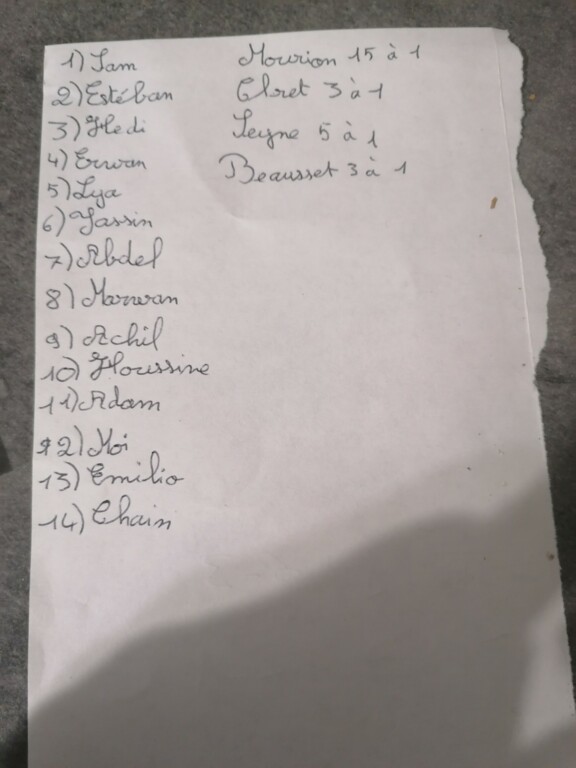 1) Sam Mourion 15 à 1
2) Estéban Clret 3 à 1
3) Hedi Seyne 5 à 1
4) Erwan Beausset 3 à 1
5) Lya
6) Yassin
7) Abdel
8) Marwan
9) Achil
10) Houssine
11) Adam
12) Moi
13) Emilio
14) Chain